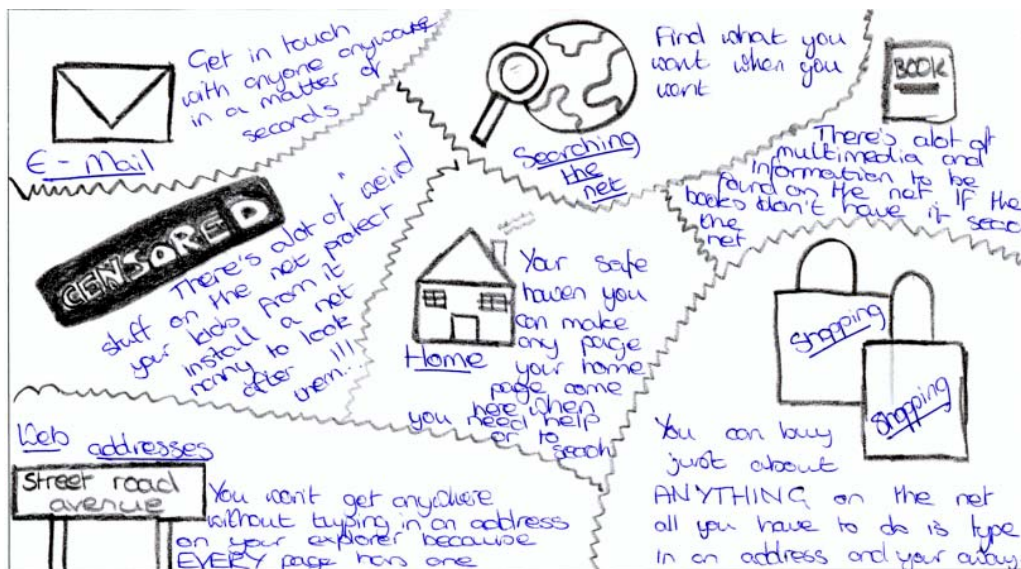 Get in touch
with anyone anyware
in a matter of
seconds
E-Mail
Searching
the
net
Find what you
want when you
want
BOOK
There's alot of
multimedia and
information to be
found on the net IF the
books don't have it
the
net
CENSORED
There's alot of "weird"
stuff on the net protect
your kids from it
install a net
nanny to look
after
them...!!!
Home
Your safe
haven you
can make
any page
your home
page come
here when
you need help
or to
search
Shopping
Shopping
You can buy
just about
ANYTHING on the net
all you have to do is type
in an address and your away
Web addresses
Street road
avenue
You won't get anywhere
without typing in an address
on your explorer because
EVERY page has one